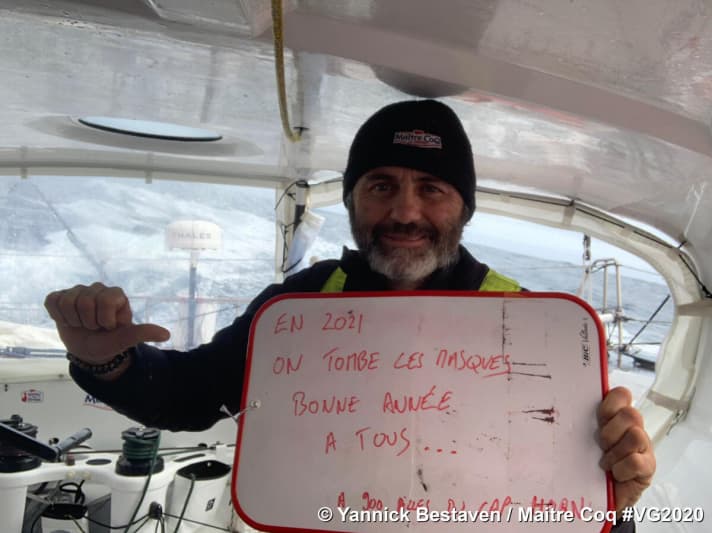 Maître CoQ
THALES
EN 2021
ON TOMBE LES MASQUES
BONNE ANNÉE
A TOUS...
A 900 MILLES DU CAP HORN
© Yannick Bestaven / Maitre Coq #VG2020